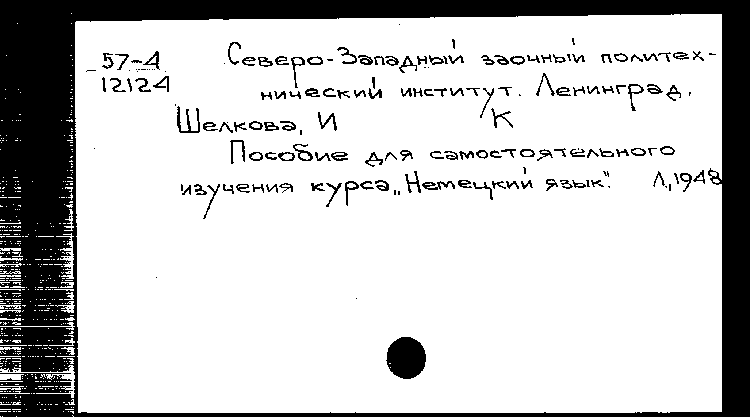 57-4 Северо-Западный заочный политех-
12124 нический институт. Ленинград.
Шелкова, И К
Пособие для самостоятельного
изучения курса „Немецкий язык". Л, 1948